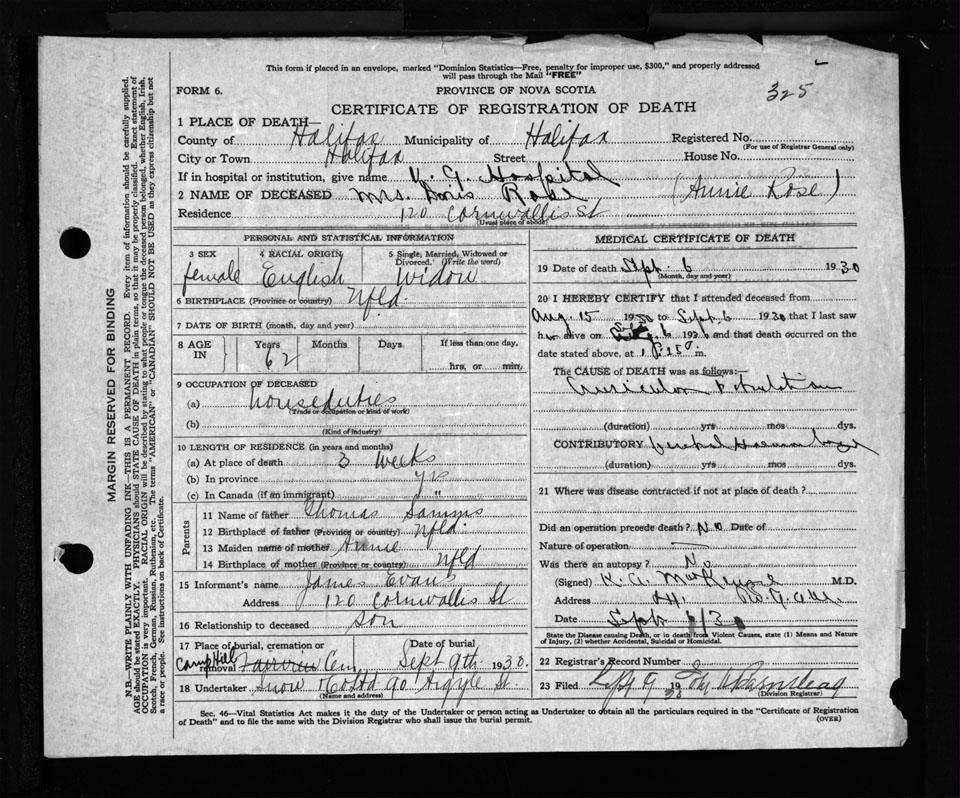 This form if placed in an envelope, marked "Dominion Statistics—Free, penalty for improper use, $300," and properly addressed
will pass through the Mail "FREE"
325
FORM 6.
PROVINCE OF NOVA SCOTIA
CERTIFICATE OF REGISTRATION OF DEATH
1 PLACE OF DEATH—
County of Halifax Municipality of Halifax Registered No.
(For use of Registrar General only)
City or Town Halifax Street House No.
If in hospital or institution, give name V. G. Hospital
2 NAME OF DECEASED Mrs. Doris Rose (Annie Rose)
Residence 120 Cornwallis St
(Usual place of abode)
PERSONAL AND STATISTICAL INFORMATION
3 SEX
female
4 RACIAL ORIGIN
English
5 Single, Married, Widowed or
Divorced. (Write the word)
Widow
6 BIRTHPLACE (Province or country) Nfld.
7 DATE OF BIRTH (month, day and year)
8 AGE
IN
Years Months Days If less than one day,
62
hrs. or min.
9 OCCUPATION OF DECEASED
(a) houseduties
(Trade or occupation or kind of work)
(b)
(Kind of industry)
10 LENGTH OF RESIDENCE (in years and months)
(a) At place of death 3 weeks
(b) In province yrs
(c) In Canada (if an immigrant) "
Parents
11 Name of father Thomas Samms
12 Birthplace of father (Province or country) Nfld.
13 Maiden name of mother Annie
14 Birthplace of mother (Province or country) Nfld
15 Informant's name James Evans
Address 120 Cornwallis St
16 Relationship to deceased Son
17 Place of burial, cremation or Date of burial
Camp Hill
removal Fairview Cem Sept 9th 1930.
18 Undertaker Snow & Co Ltd 90 Argyle St.
(Name and address)
MEDICAL CERTIFICATE OF DEATH
19 Date of death Sept. 6 1930
(Month, day and year)
20 I HEREBY CERTIFY that I attended deceased from
Aug. 15 1930 to Sept. 6 1930 that I last saw
h alive on 6 19 and that death occurred on the
date stated above, at m.
The CAUSE of DEATH was as follows:—
(duration) yrs mos dys.
CONTRIBUTORY
(duration) yrs mos dys.
21 Where was disease contracted if not at place of death?
Did an operation precede death? No Date of
Nature of operation —
Was there an autopsy? No
(Signed) K. A. MacKenzie M.D.
Address
Date Sept 6/30
State the Disease causing Death, or in death from Violent Causes, state (1) Means and Nature
of Injury, (2) whether Accidental, Suicidal or Homicidal.
22 Registrar's Record Number
23 Filed Sept 9 19
(Division Registrar)
Sec. 46—Vital Statistics Act makes it the duty of the Undertaker or person acting as Undertaker to obtain all the particulars required in the "Certificate of Registration
of Death" and to file the same with the Division Registrar who shall issue the burial permit.
(OVER)
MARGIN RESERVED FOR BINDING
N.B.—WRITE PLAINLY WITH UNFADING INK—THIS IS A PERMANENT RECORD. Every item of information should be carefully supplied.
AGE should be stated EXACTLY. PHYSICIANS should STATE CAUSE OF DEATH in plain terms, so that it may be properly classified. Exact statement of
OCCUPATION is very important. RACIAL ORIGIN will be described by stating to what people or tongue the deceased person belonged, whether English, Irish,
Scotch, French, German, Russian, Ruthenian, etc. The terms "AMERICAN" or "CANADIAN" SHOULD NOT BE USED as they express citizenship but not
a race or people. See instructions on back of Certificate.